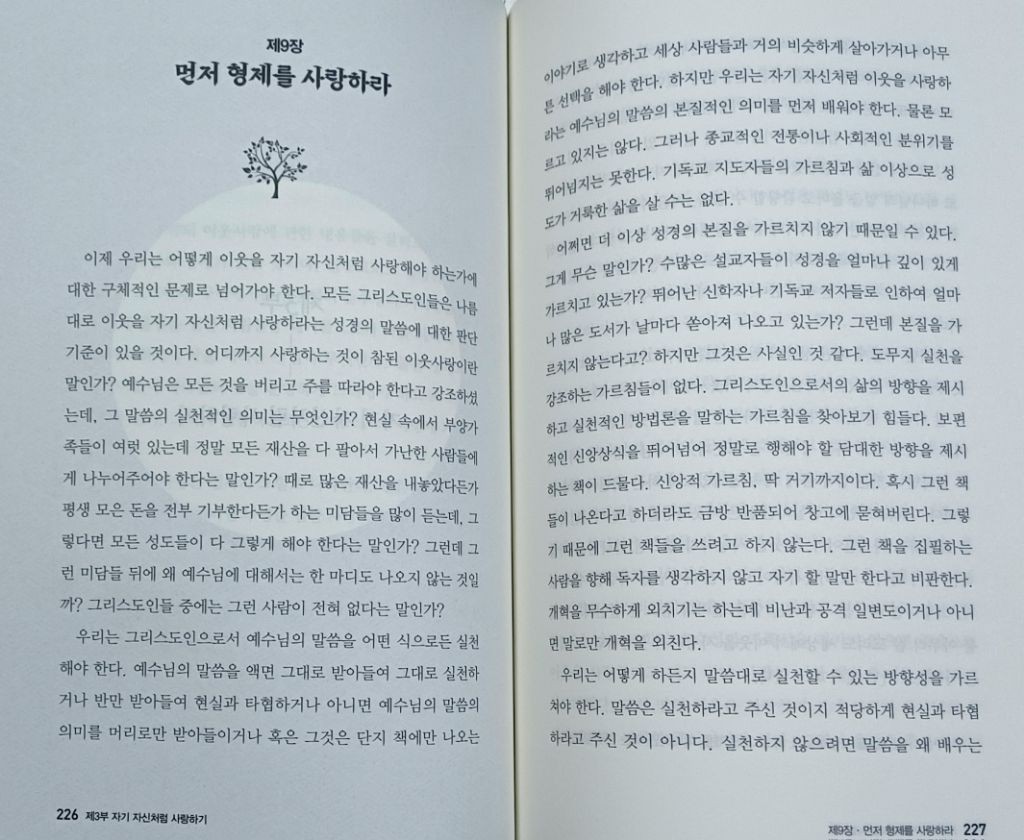 제9장
먼저 형제를 사랑하라
이제 우리는 어떻게 이웃을 자기 자신처럼 사랑해야 하는가에
대한 구체적인 문제로 넘어가야 한다. 모든 그리스도인들은 나름
대로 이웃을 자기 자신처럼 사랑하라는 성경의 말씀에 대한 판단
기준이 있을 것이다. 어디까지 사랑하는 것이 참된 이웃사랑이란
말인가? 예수님은 모든 것을 버리고 주를 따라야 한다고 강조하셨
는데, 그 말씀의 실천적인 의미는 무엇인가? 현실 속에서 부양가
족들이 여럿 있는데 정말 모든 재산을 다 팔아서 가난한 사람들에
게 나누어주어야 한다는 말인가? 때로 많은 재산을 내놓았다든가
평생 모은 돈을 전부 기부한다든가 하는 미담들을 많이 듣는데, 그
렇다면 모든 성도들이 다 그렇게 해야 한다는 말인가? 그런데 그
런 미담들 뒤에 왜 예수님에 대해서는 한 마디도 나오지 않는 것일
까? 그리스도인들 중에는 그런 사람이 전혀 없다는 말인가?
우리는 그리스도인으로서 예수님의 말씀을 어떤 식으로든 실천
해야 한다. 예수님의 말씀을 액면 그대로 받아들여 그대로 실천하
거나 반만 받아들여 현실과 타협하거나 아니면 예수님의 말씀의
의미를 머리로만 받아들이거나 혹은 그것은 단지 책에만 나오는
226 제3부 자기 자신처럼 사랑하기
이야기로 생각하고 세상 사람들과 거의 비슷하게 살아가거나 아무
튼 선택을 해야 한다. 하지만 우리는 자기 자신처럼 이웃을 사랑하
라는 예수님의 말씀의 본질적인 의미를 먼저 배워야 한다. 물론 모
르고 있지는 않다. 그러나 종교적인 전통이나 사회적인 분위기를
뛰어넘지는 못한다. 기독교 지도자들의 가르침과 삶 이상으로 성
도가 거룩한 삶을 살 수는 없다.
어쩌면 더 이상 성경의 본질을 가르치지 않기 때문일 수 있다.
그게 무슨 말인가? 수많은 설교자들이 성경을 얼마나 깊이 있게
가르치고 있는가? 뛰어난 신학자나 기독교 저자들로 인하여 얼마
나 많은 도서가 날마다 쏟아져 나오고 있는가? 그런데 본질을 가
르치지 않는다고? 하지만 그것은 사실인 것 같다. 도무지 실천을
강조하는 가르침들이 없다. 그리스도인으로서의 삶의 방향을 제시
하고 실천적인 방법론을 말하는 가르침을 찾아보기 힘들다. 보편
적인 신앙상식을 뛰어넘어 정말로 행해야 할 담대한 방향을 제시
하는 책이 드물다. 신앙적 가르침, 딱 거기까지이다. 혹시 그런 책
들이 나온다고 하더라도 금방 반품되어 창고에 묻혀버린다. 그렇
기 때문에 그런 책들을 쓰려고 하지 않는다. 그런 책을 집필하는
사람을 향해 독자를 생각하지 않고 자기 할 말만 한다고 비판한다.
개혁을 무수하게 외치기는 하는데 비난과 공격 일변도이거나 아니
면 말로만 개혁을 외친다.
우리는 어떻게 하든지 말씀대로 실천할 수 있는 방향성을 가르
쳐야 한다. 말씀은 실천하라고 주신 것이지 적당하게 현실과 타협
하라고 주신 것이 아니다. 실천하지 않으려면 말씀을 왜 배우는
제9장 · 먼저 형제를 사랑하라 227